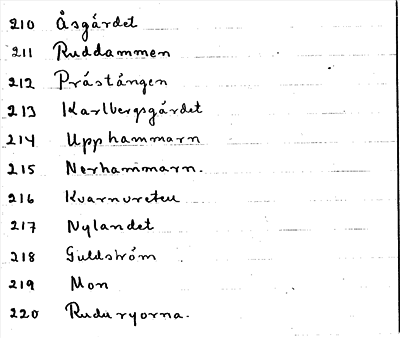 210 Åsgärdet
211 Ruddammen
212 Prästängen
213 Karlbergsgärdet
214 Upphammarn
215 Nerhammarn.
216 Kvarnvreten
217 Nylandet
218 Guldström
219 Mon
220 Ruduryorna.